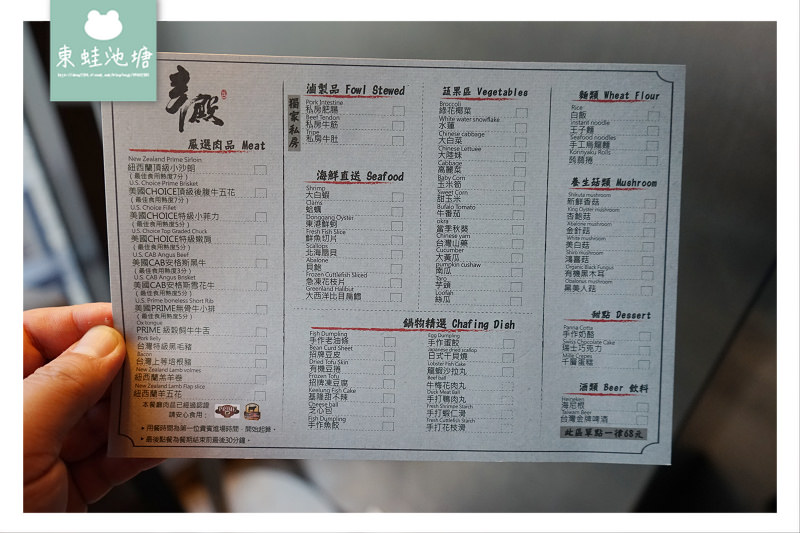 東蛙池塘
殿
嚴選肉品 Meat
New Zealand Prime Sirloin
紐西蘭頂級小沙朗
(最佳食用熟度7分)
U.S. Choice Prime Brisket
美國CHOICE頂級後腹牛五花
(最佳食用熟度7分)
U.S. Choice Fillet
美國CHOICE特級小菲力
(最佳食用熟度5分)
U.S. Choice Top Graded Chuck
美國CHOICE特級嫩肩
(最佳食用熟度5分)
U.S. CAB Angus Beef
美國CAB安格斯黑牛
(最佳食用熟度3分)
U.S. CAB Angus Brisket
美國CAB安格斯雪花牛
(最佳食用熟度5分)
U.S. Prime boneless Short Rib
美國PRIME無骨牛小排
(最佳食用熟度5分)
Ox tongue
PRIME 級穀飼牛牛舌
Pork Belly
台灣特級黑毛豬
Bacon
台灣上等培根豬
New Zealand Lamb volmes
紐西蘭羔羊卷
New Zealand Lamb Flap slice
紐西蘭羊五花
本餐廳肉品已經過認證
請安心食用：
• 用餐時間為第一位貴賓進場時間，開始起鍋。
• 最後點餐為餐期結束前最後30分鐘。
獨家私房
滷製品 Fowl Stewed
Pork Intestine
私房肥腸
Beef Tendon
私房牛筋
Tripe
私房牛肚
海鮮直送 Seafood
Shrimp
大白蝦
Clams
蛤蠣
Donggang Oyster
東港鮮蚵
Fresh Fish Slice
鮮魚切片
Scallops
北海扇貝
Abalone
貝鮑
Frozen Cuttlefish Sliced
急凍花枝片
Greenland Halibut
大西洋比目扁鱈
蔬果區 Vegetables
Broccoli
綠花椰菜
White water snowflake
水蓮
Chinese cabbage
大白菜
Chinese Lettuee
大陸妹
Cabbage
高麗菜
Baby Corn
玉米筍
Sweet Corn
甜玉米
Bufalo Tomato
牛番茄
okra
當季秋葵
Chinese yam
台灣山藥
Cucumber
大黃瓜
pumpkin cushaw
南瓜
Taro
芋頭
Loofah
絲瓜
鍋物精選 Chafing Dish
Fish Dumpling
手作老油條
Bean Curd Sheet
招牌豆皮
Dried Tofu Skin
有機豆捲
Frozen Tofu
招牌凍豆腐
Keelung Fish Cake
基隆甜不辣
Cheese ball
芝心包
Fish Dumpling
手作魚餃
Egg Dumpling
手作蛋餃
日式干貝燒
Lobster Fish Cake
龍蝦沙拉丸
Beef ball
牛梅花肉丸
Duck Meat Ball
手打鴨肉丸
Fresh Shrimp Starch
手打蝦仁滑
Fresh Cuttlefish Starch
手打花枝滑
麵類 Wheat Flour
Rice
白飯
instant noodle
王子麵
Seafood noodles
手工烏龍麵
Konnyaku Rolls
蒟蒻捲
養生菇類 Mushroom
Shiikuta mushroom
新鮮香菇
King Oyster mushroom
杏鮑菇
Abalone mushroom
金針菇
White mushroom
美白菇
Shiro mushroom
鴻喜菇
Organic Black Fungus
有機黑木耳
Oteatonus mushroom
黑美人菇
甜點 Dessert
Panna Cotta
手作奶酪
Swiss Chocolate Cake
瑞士巧克力
Mille Crepes
千層蛋糕
酒類 Beer 飲料
Heineken
海尼根
Taiwan Beer
台灣金牌啤酒
此區單點一律68元